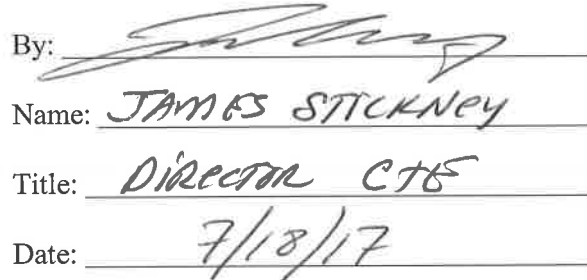 By:
Name: JAMES STICKNEY
Title: DIRECTOR CTE
Date: 7/18/17